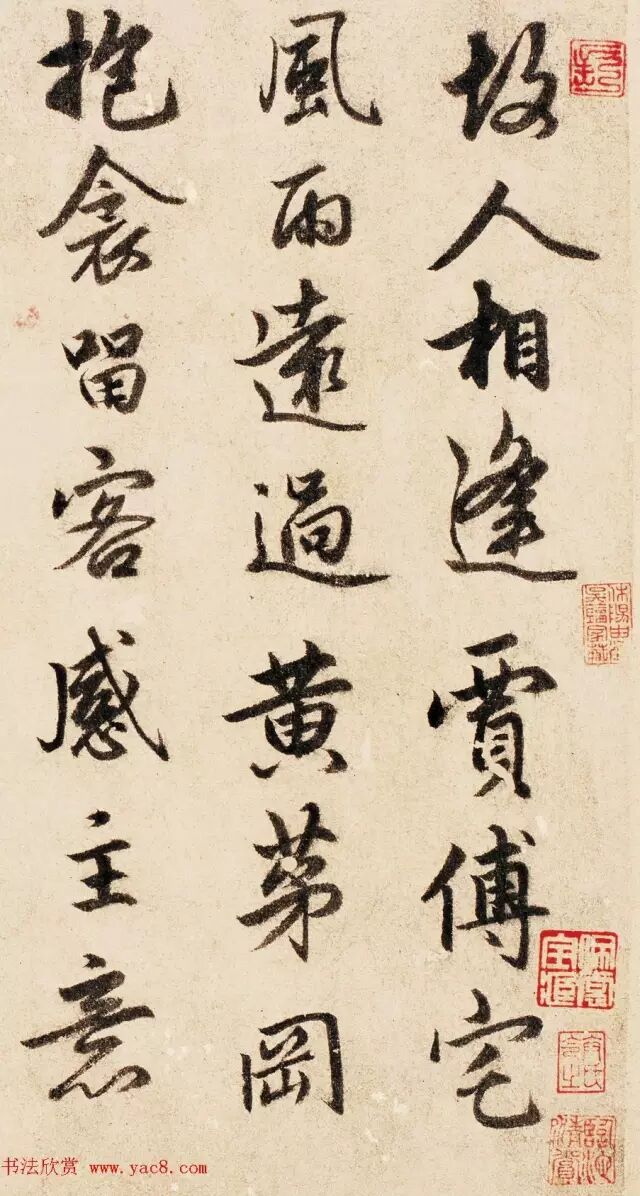 故人相逢賈傅宅
風雨遠過黄茅岡
抱衾留客感主意
书法欣赏 www.yac8.com